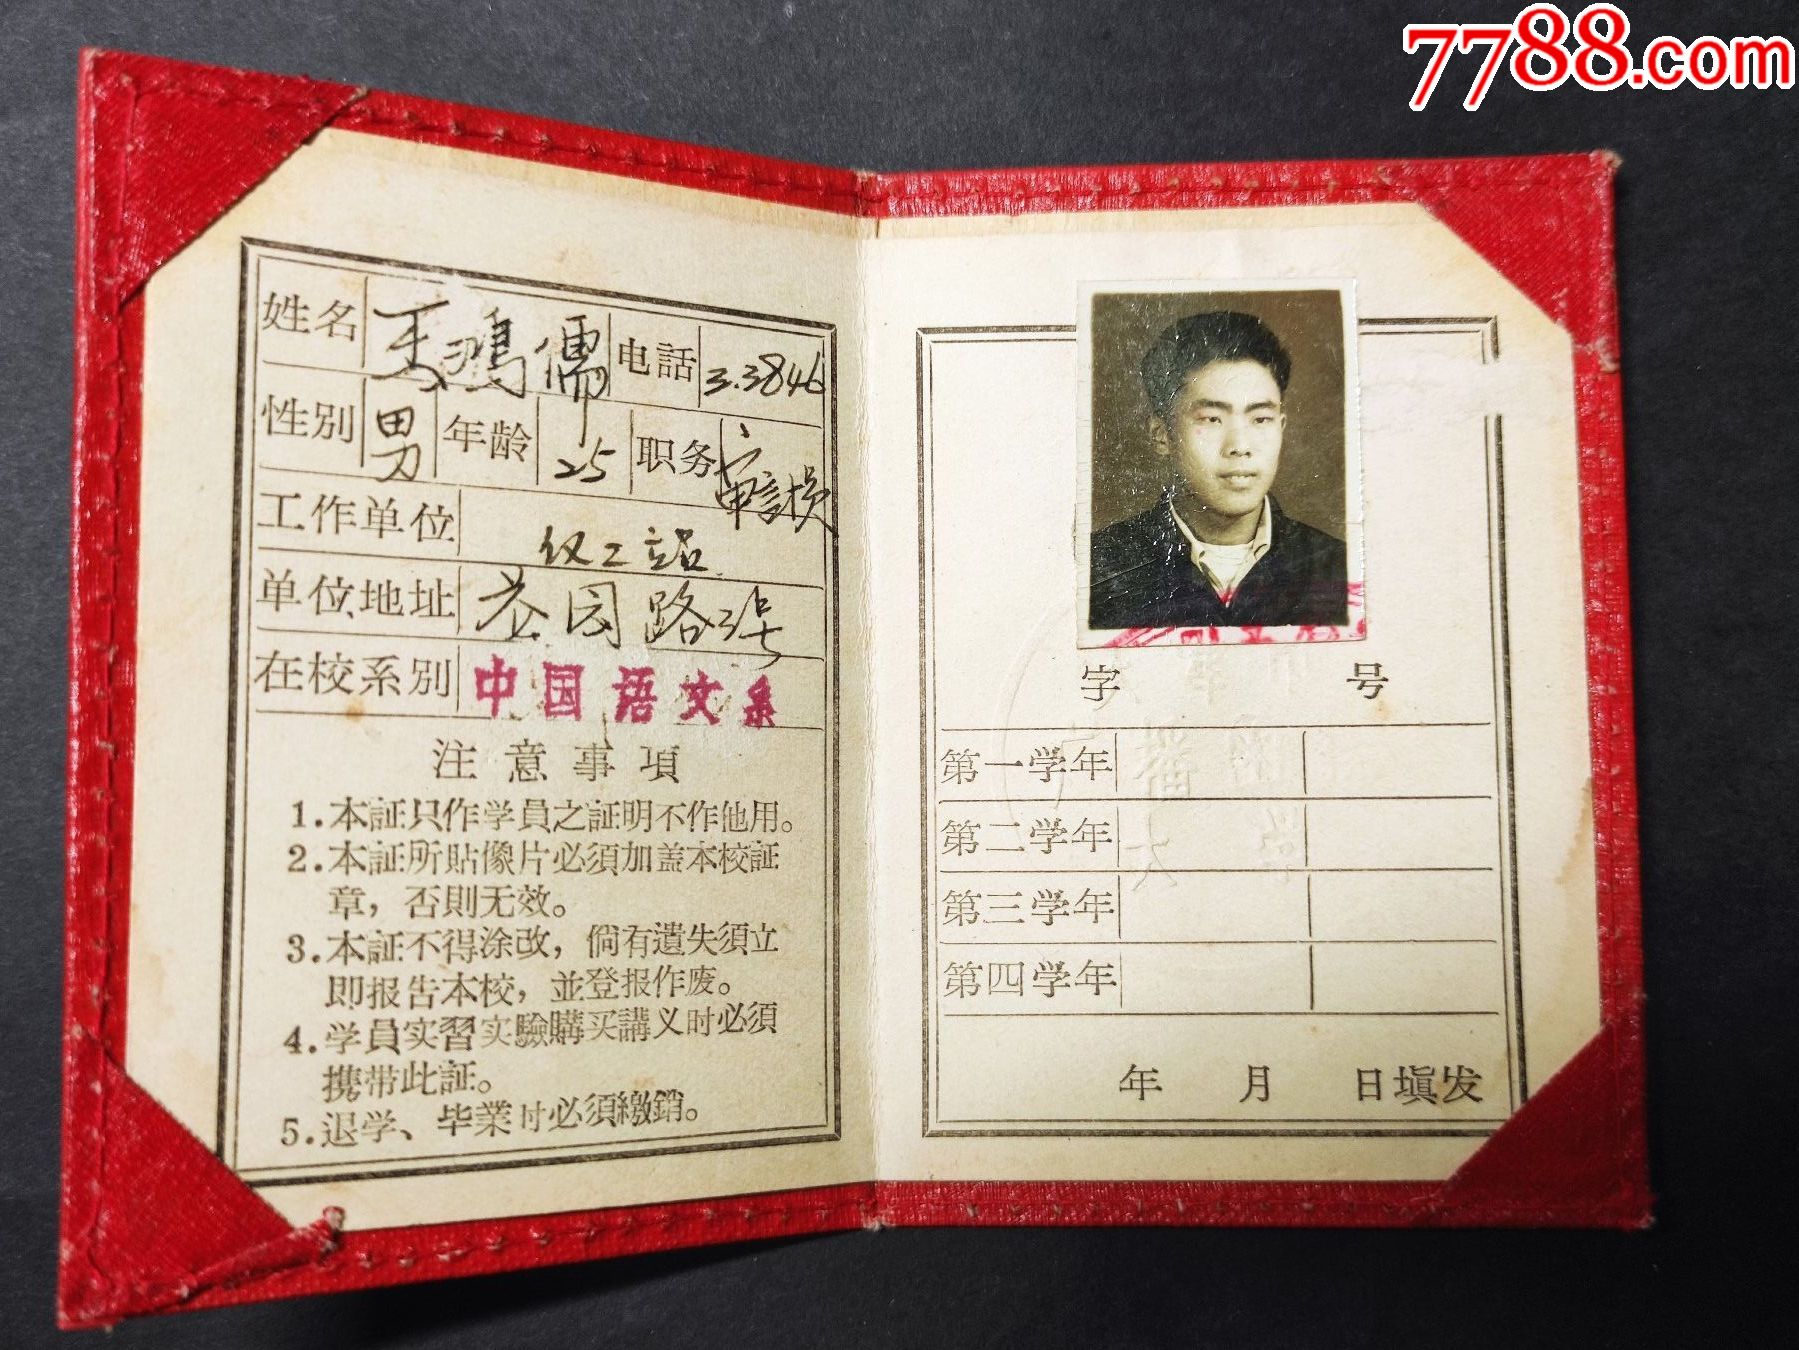 7788.com
姓名 王鸿儒 电話 3.3846
性别 男 年龄 25 职务
工作单位 仪工站
单位地址 园路
在校系別 中国语文系
注意事項
1.本証只作学員之証明不作他用。
2.本証所貼像片必須加盖本校証
章，否則无效。
3.本証不得涂改，倘有遺失須立
即报告本校，並登报作废。
4.学員实習实驗購买講义时必須
携带此証。
5.退学、毕業时必須繳銷。
字 号
第一学年
第二学年
第三学年
第四学年
年 月 日填发